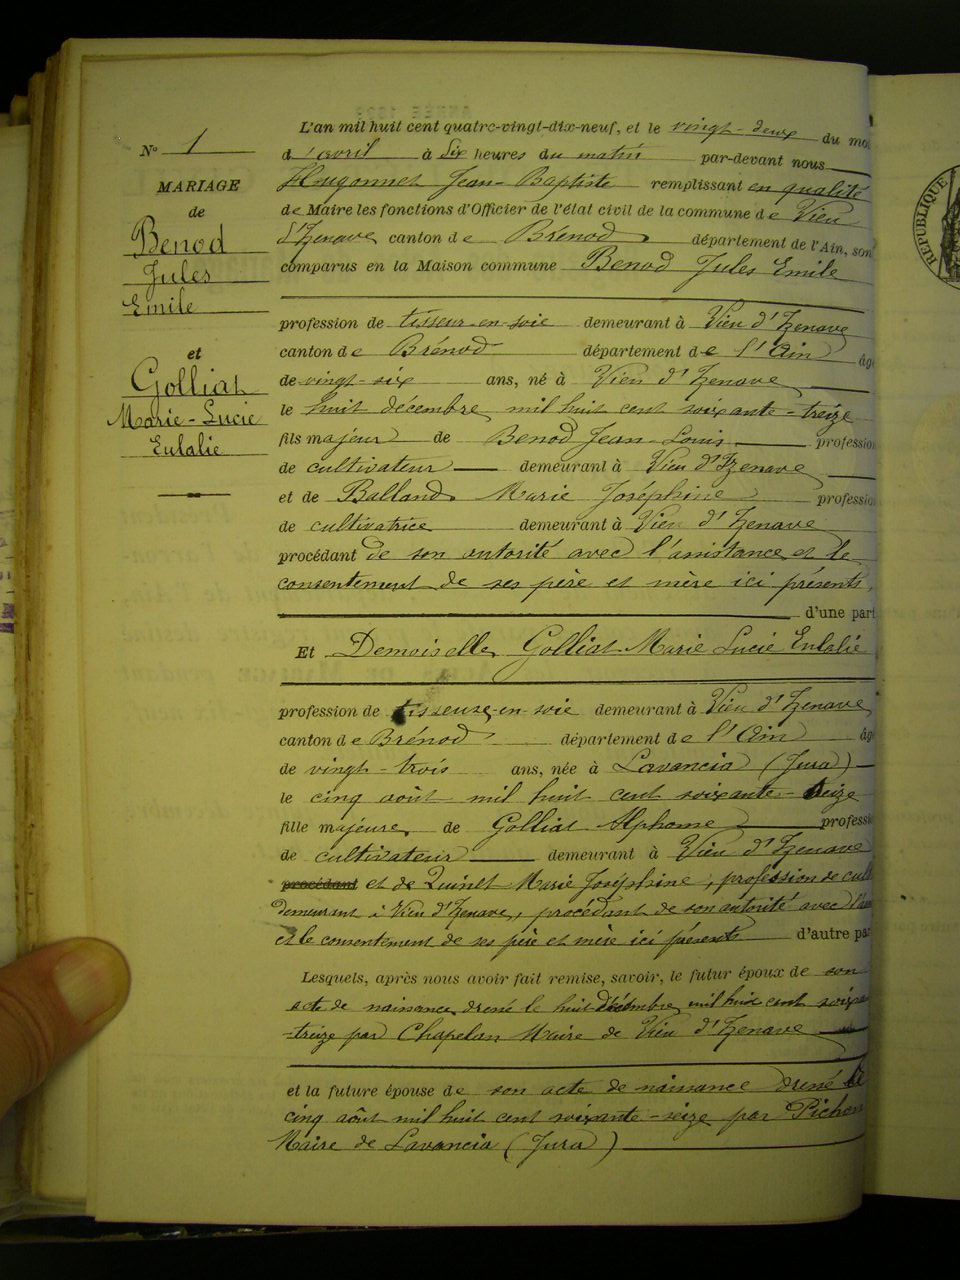 N° 1
MARIAGE
de
Benod
Jules
Emile
et
Golliat
Marie-Lucie
Eulalie
L'an mil huit cent quatre-vingt-dix-neuf, et le vingt-deux du moi
d'avril à Six heures du matin par-devant nous
Hugonnet Jean-Baptiste remplissant en qualité
de Maire les fonctions d'Officier de l'état civil de la commune de Vieu
d'Izenave canton de Brénod département de l'Ain, son
comparus en la Maison commune Benod Jules Emile
profession de tisseur-en-soie demeurant à Vieu d'Izenave
canton de Brénod département de l'Ain âg
de vingt-six ans, né à Vieu d'Izenave
le huit décembre mil huit cent soixante-treize
fils majeur de Benod Jean-Louis profession
de cultivateur demeurant à Vieu d'Izenave
et de Balland Marie Joséphine profession
de cultivatrice demeurant à Vieu d'Izenave
procédant de son autorité avec l'assistance et le
consentement de ses père et mère ici présents,
d'une part
Et Demoiselle Golliat Marie Lucie Eulalie
profession de tisseuse-en-soie demeurant à Vieu d'Izenave
canton de Brénod département de l'Ain âg
de vingt-trois ans, née à Lavancia (Jura)
le cinq août mil huit cent soixante-seize
fille majeure de Golliat Alphonse professi
de cultivateur demeurant à Vieu d'Izenave
procédant et de Quinet Marie Joséphine, profession de cult
demeurant à Vieu d'Izenave, procédant de son autorité avec l'as
et le consentement de ses père et mère ici présents d'autre par
Lesquels, après nous avoir fait remise, savoir, le futur époux de son
acte de naissance dressé le huit décembre mil huit cent soixan
-treize par Chapelan Maire de Vieu d'Izenave
et la future épouse de son acte de naissance dressé le
cinq août mil huit cent soixante-seize par Pichon
Maire de Lavancia (Jura)
REPUBLIQUE